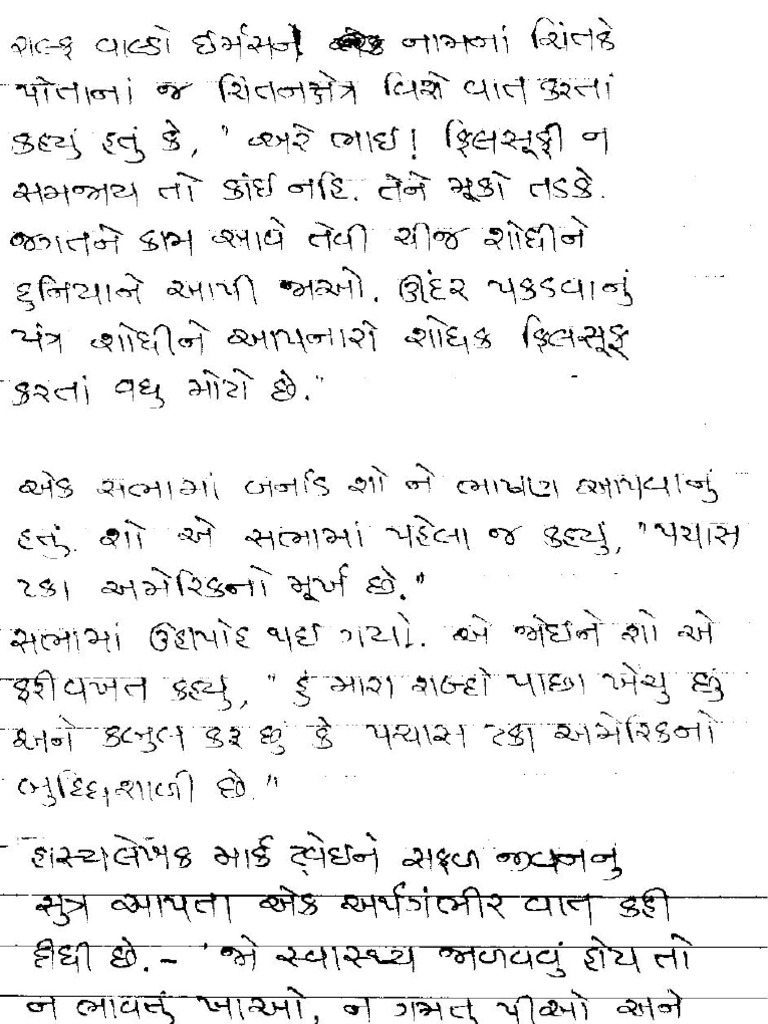 રાલ્ફ વાલ્ડો ઈર્મસને નામનાં ચિંતકે
પોતાનાં જ ચિંતનક્ષેત્ર વિશે વાત કરતાં
કહ્યું હતું કે, " અરે ભાઈ! ફિલસૂફી ન
સમજાય તો કાંઈ નહિ. તેને મૂકો તડકે.
જગતને કામ આવે તેવી ચીજ શોધીને
દુનિયાને આપી જાઓ. ઊંદર પકડવાનું
યંત્ર શોધીને આપનારો શોધક ફિલસૂફ
કરતાં વધુ મોટો છે."
એક સભામાં બર્નાડ શો ને ભાષણ આપવાનું
હતું. શો એ સભામાં પહેલા જ કહ્યું, "પચાસ
ટકા અમેરિકનો મૂર્ખ છે."
સભામાં ઉહાપોહ થઈ ગયો. એ જોઈને શો એ
ફરીવખત કહ્યુ, " હું મારા શબ્દો પાછા ખેચુ છું
અને કબુલ કરૂ છું કે પચ્ચાસ ટકા અમેરિકનો
બુદ્ધિશાળી છે."
હાસ્યલેખક માર્ક ટ્વેઈને સફળ જીવનનુ
સુત્ર આપતા એક અર્થગંભીર વાત કહી
દીધી છે. - 'જો સ્વાસ્થ્ય જાળવવું હોય તો
ન ભાવતું ખાઓ, ન ગમતુ પીઓ અને